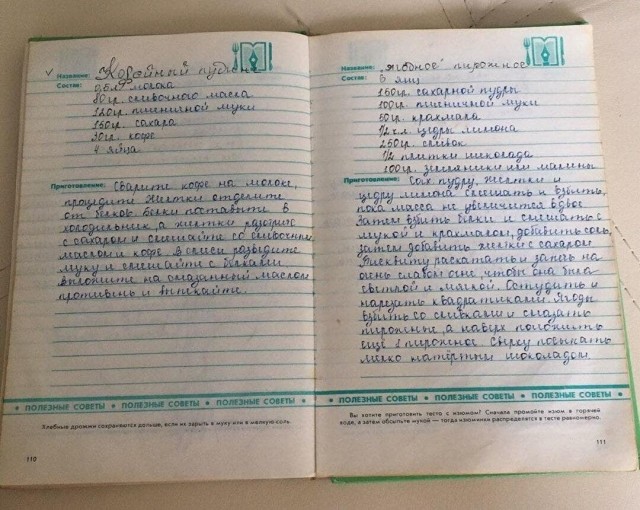 Название: Кофейный пудинг
Состав:
0,5 л молока
80 гр. сливочного масла
120 гр. пшеничной муки
150 гр. сахара
30 гр. кофе
4 яйца
Приготовление: Сварите кофе на молоке,
процедите. Желтки отделите
от белков. Белки поставьте в
холодильник, а желтки
с сахаром и смешайте со сливочным
маслом и кофе. В смеси разведите
муку и смешайте с белками
выложите на смазанный маслом
противень и выпекайте.
ПОЛЕЗНЫЕ СОВЕТЫ • ПОЛЕЗНЫЕ СОВЕТЫ • ПОЛЕЗНЫЕ СОВЕТЫ
Хлебные дрожжи сохраняются дольше, если их зарыть в муку или в мелкую соль.
110
Название: "Ягодное" пирожное
Состав: 3 яиц
150 гр. сахарной пудры
100 гр. пшеничной муки
50 гр. крахмала
1/2 ч.л. цедры лимона
250 гр. сливок
1/2 плитки шоколада
100 гр. земляники или малины
Приготовление: Соль пудру, желтки и
цедру лимона смешать и взбить,
пока масса не увеличится вдвое.
Затем взбить белки и смешать с
мукой и крахмалом, добавить соль,
затем добавить желтки с сахаром.
Бисквит раскатать и запечь на
очень слабом огне, чтобы она была
светлой и мягкой. Остудить и
нарезать квадратиками. Ягоды
взбить со сливками и смазать
пирожные, а наверх положить
еще 1 пирожное. Сверху посыпать
мелко натёртым шоколадом.
ПОЛЕЗНЫЕ СОВЕТЫ • ПОЛЕЗНЫЕ СОВЕТЫ • ПОЛЕЗНЫЕ СОВЕТЫ
Вы хотите приготовить тесто с изюмом? Сначала промойте изюм в горячей
воде, а затем обсыпьте мукой — тогда изюминки распределятся в тесте равномерно.
111